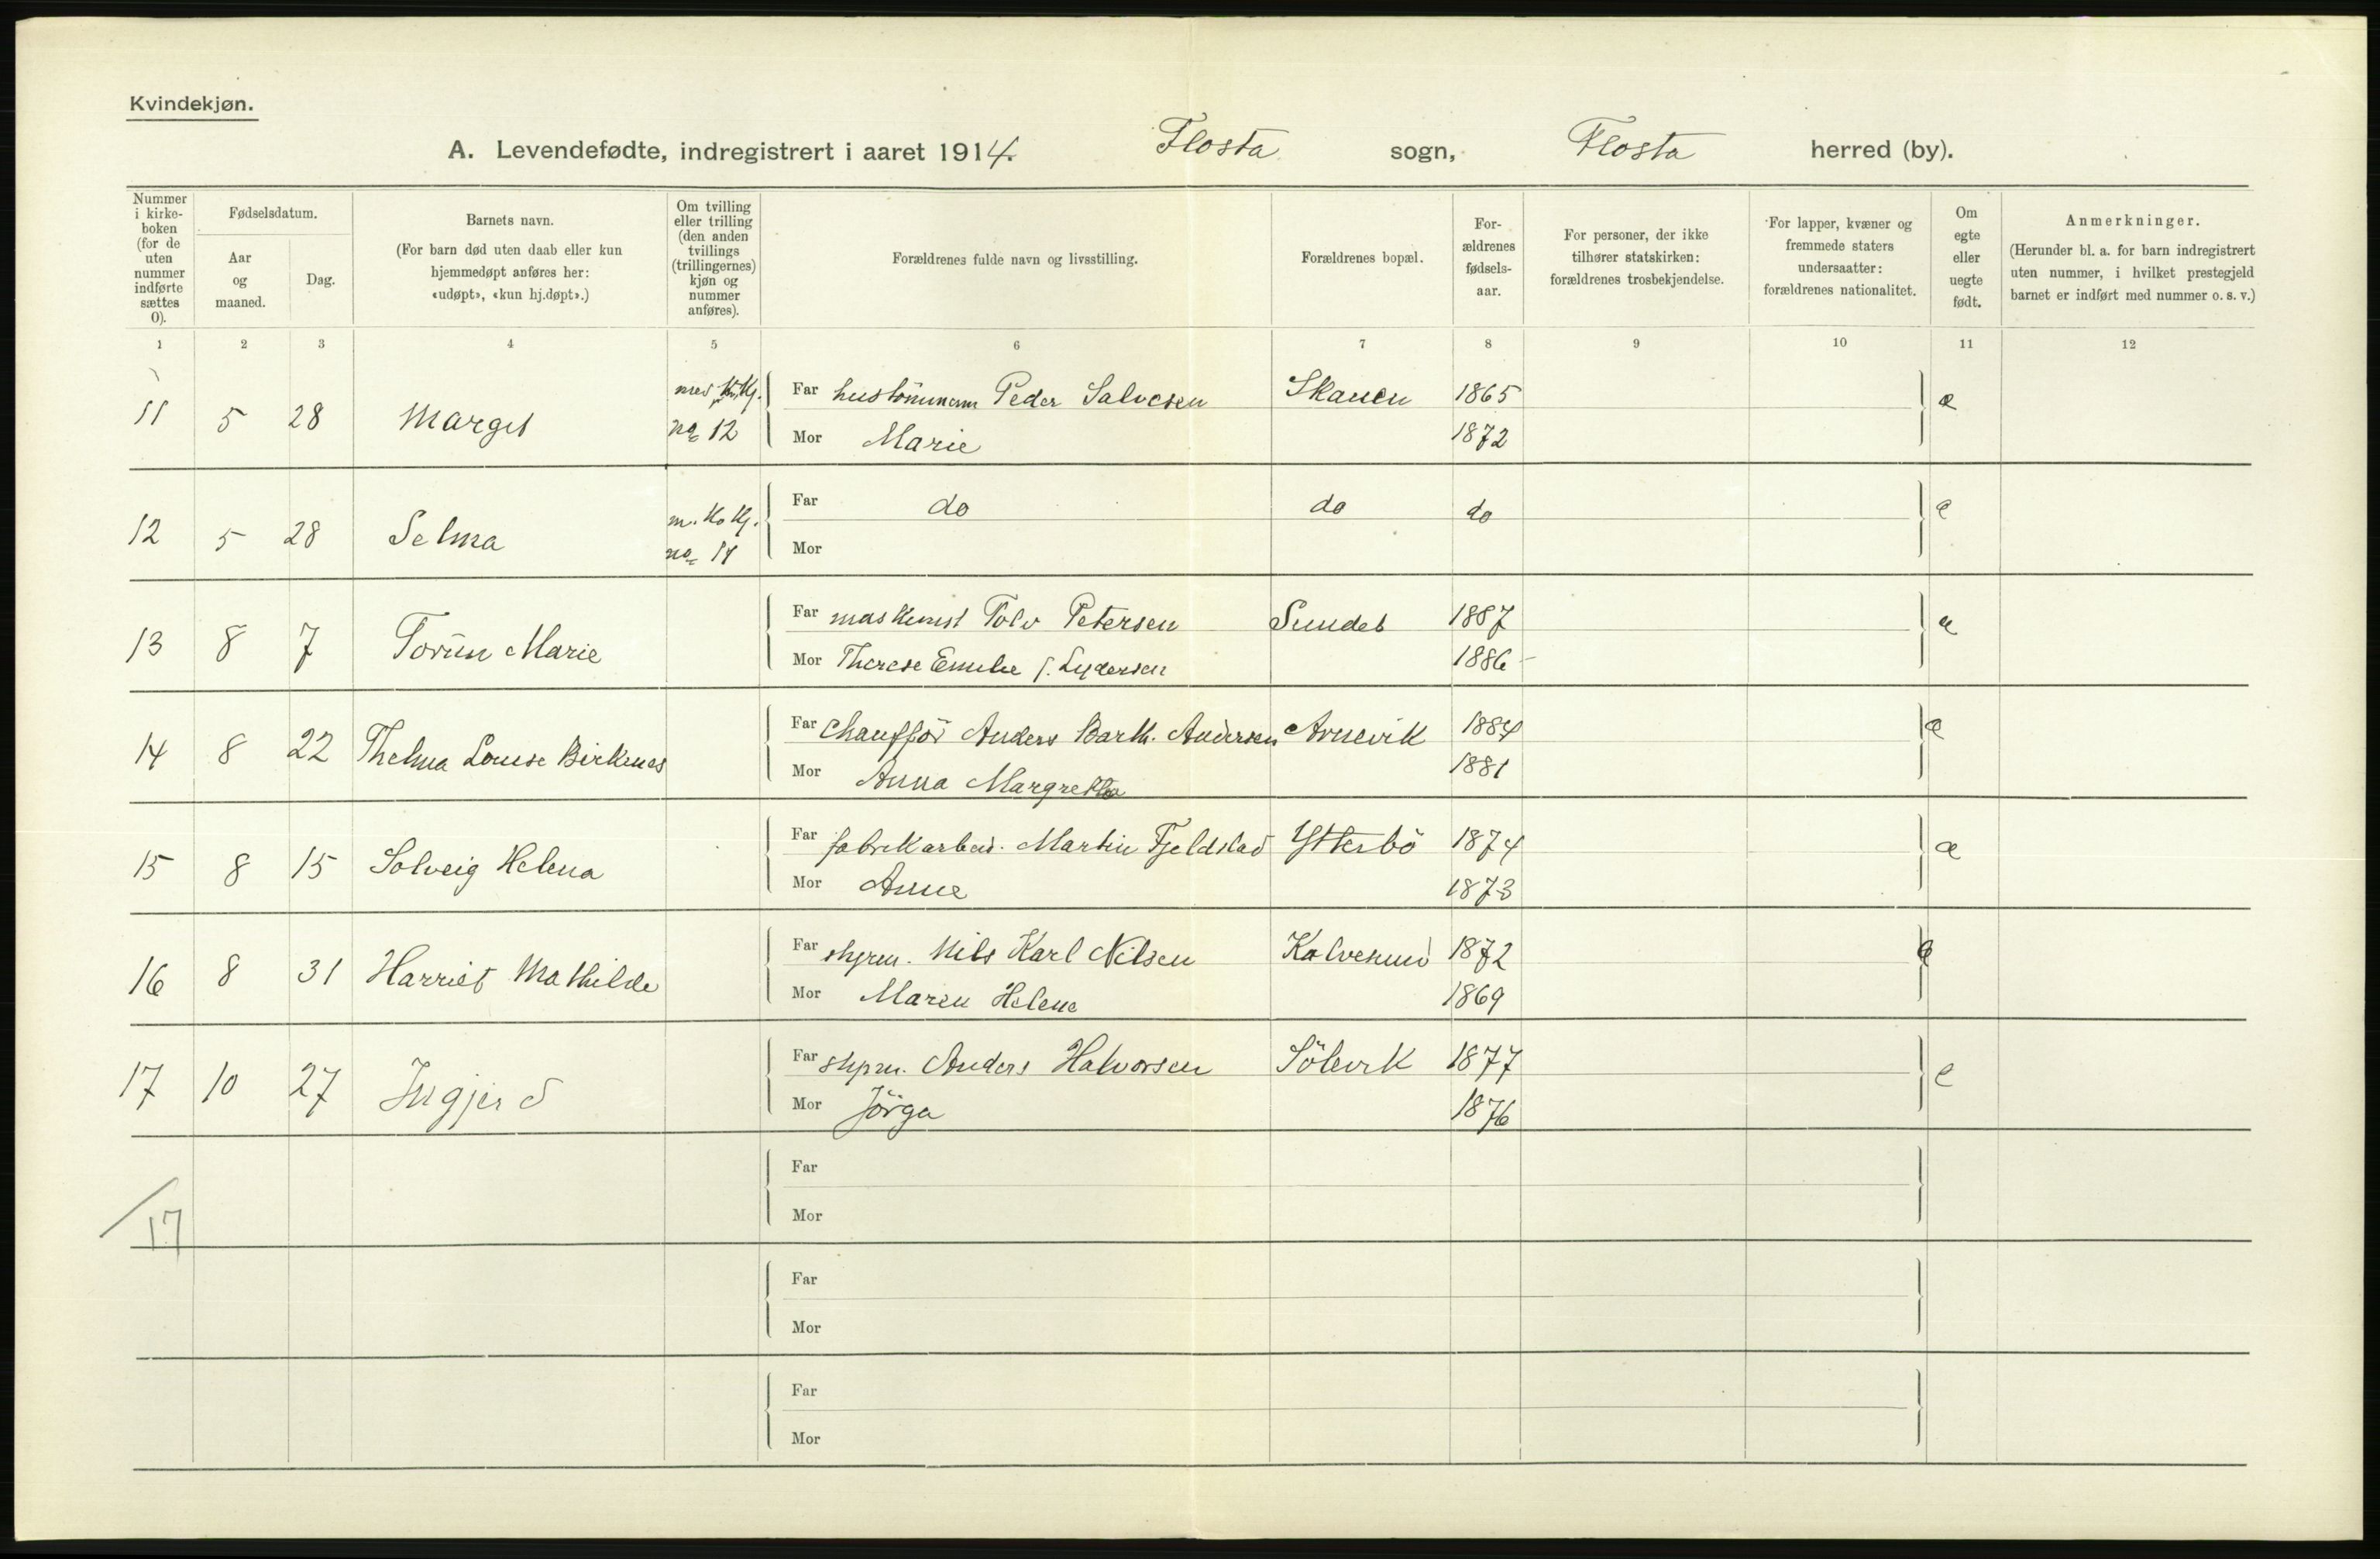 Kvindekjøn.
A. Levendefødte, indregistrert i aaret 1914. Flosta sogn, Flosta herred (by).
Nummer i kirkeboken (for de uten nummer indførte sættes 0).
Fødselsdatum.
Aar og maaned.
Dag.
Barnets navn.
(For barn død uten daab eller kun hjemmedøpt anføres her: «udøpt», «kun hj.døpt».)
Om tvilling eller trilling (den anden tvillings (trillingernes) kjøn og nummer anføres).
Forældrenes fulde navn og livsstilling.
Forældrenes bopæl.
Forældrenes fødselsaar.
For personer, der ikke tilhører statskirken: forældrenes trosbekjendelse.
For lapper, kvæner og fremmede staters undersaatter: forældrenes nationalitet.
Om egte eller uegte født.
Anmerkninger.
(Herunder bl. a. for barn indregistrert uten nummer, i hvilket prestegjeld barnet er indført med nummer o. s. v.)
1 2 3 4 5 6 7 8 9 10 11 12
11 5 28 Margit med Kv.Kj. no 12 Far hustömmerm Peder Salvesen Skauen 1865 e
Mor Marie 1872
12 5 28 Selma m. Kv Kj. no 11 Far do do do e
Mor
13 8 7 Torun Marie Far maskinist Tolv Petersen Sundet 1887 e
Mor Therese Emilie f. Lydersen 1886
14 8 22 Thelma Louise Birkenes Far Chaufför Anders Barth. Andersen Arnevik 1884 e
Mor Anna Margretha 1881
15 8 15 Solveig Helena Far fabrikarbeid. Martin Fjeldstad Ytterbö 1874 e
Mor Anne 1873
16 8 31 Harriet Mathilde Far styrm. Nils Karl Nilsen Kalvesund 1872 e
Mor Maren Helene 1869
17 10 27 Ingjerd Far skpm. Anders Halvorsen Sölevik 1877 e
Mor Jörga 1876
Far
/17
Mor
Far
Mor
Far
Mor